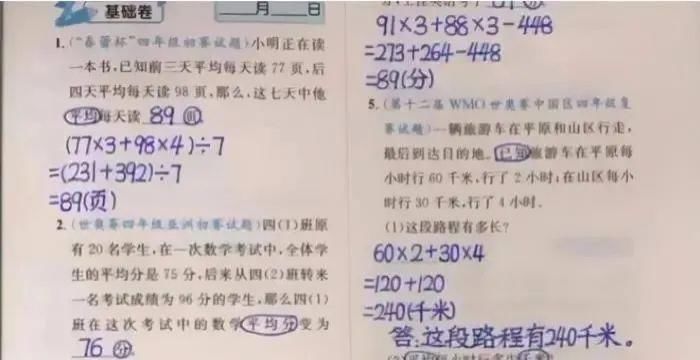 基础卷
月 日
1.(“春蕾杯”四年级初赛试题)小明正在读
一本书,已知前三天平均每天读 77 页,后
四天平均每天读 98 页,那么,这七天中他
平均每天读 89 页.
(77×3+98×4)÷7
=(231+392)÷7
=89(页)
2.(世奥赛四年级亚洲初赛试题)四(1)班原
有 20 名学生,在一次数学考试中,全体学
生的平均分是 75 分,后来从四(2)班转来
一名考试成绩为 96 分的学生,那么四(1)
班在这次考试中的数学平均分变为
76 分.
91×3+88×3-448
=273+264-448
=89(分)
5.(第十二届 WMO 世奥赛中国区四年级复
赛试题)一辆旅游车在平原和山区行走,
最后到达目的地.已知旅游车在平原每
小时行 60 千米,行了 2 小时;在山区每小
时行 30 千米,行了 4 小时.
(1)这段路程有多长?
60×2+30×4
=120+120
=240(千米)
答:这段路程有240千米。